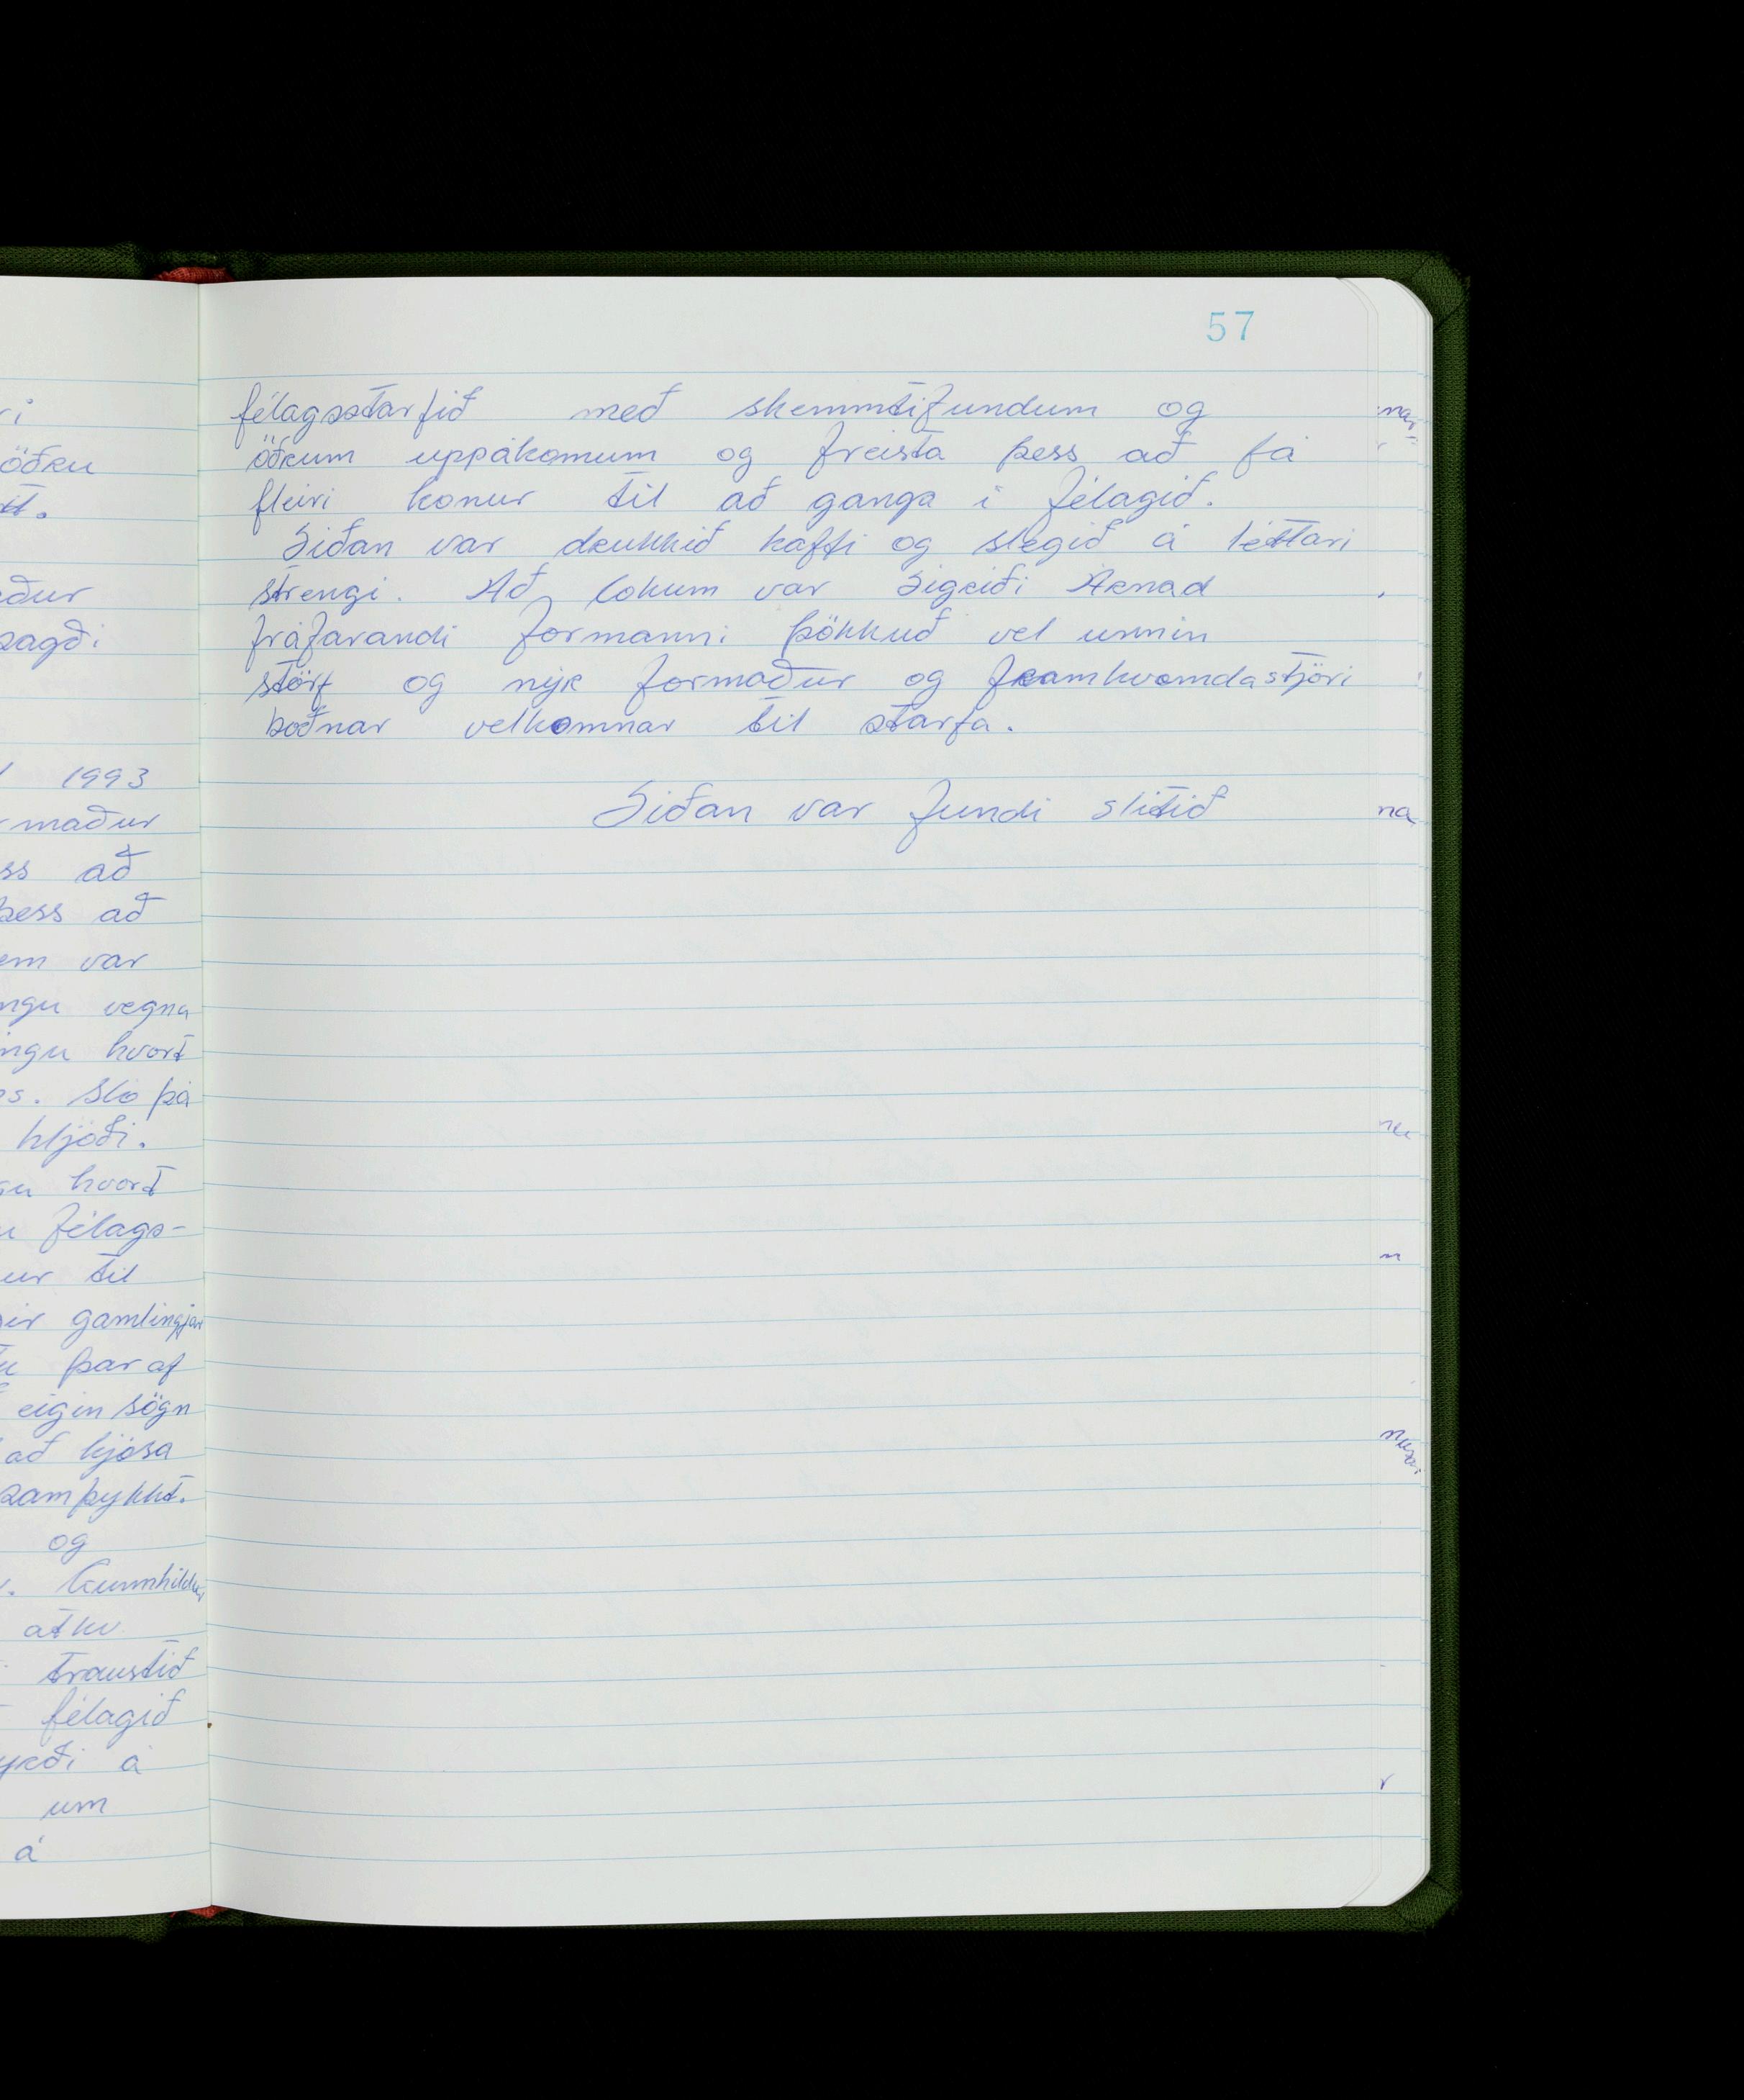 57
félagsstarfið með skemmtifundum og
öðrum uppákomum og freista þess að fá
fleiri konur til að ganga í félagið.
Síðan var drukkið kaffi og slegið á léttari
strengi. Að lokum var Sigríði Arnad
fráfarandi formanni þökkuð vel unnin
störf og nýr formaður og framkvæmdastjóri
boðnar velkomnar til starfa.
Síðan var fundi slitið
öðru
sagði
1993
maður
að
þess að
var
vegna
hvort
Sló þá
hljóði.
hvort
félags-
til
gamlingjar
þar af
eigin sögn
að kjósa
samþykkt.
og
Gunnhildur
atkv
traustið
félagið
á
um
á